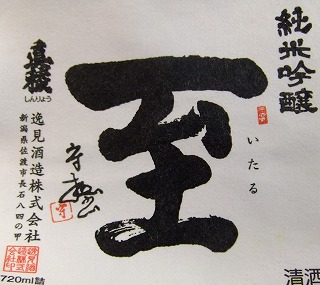 純米吟醸
至
いたる
真稜
しんりょう
逸見酒造株式会社
新潟県佐渡市長石八四の甲
720ml詰
清酒